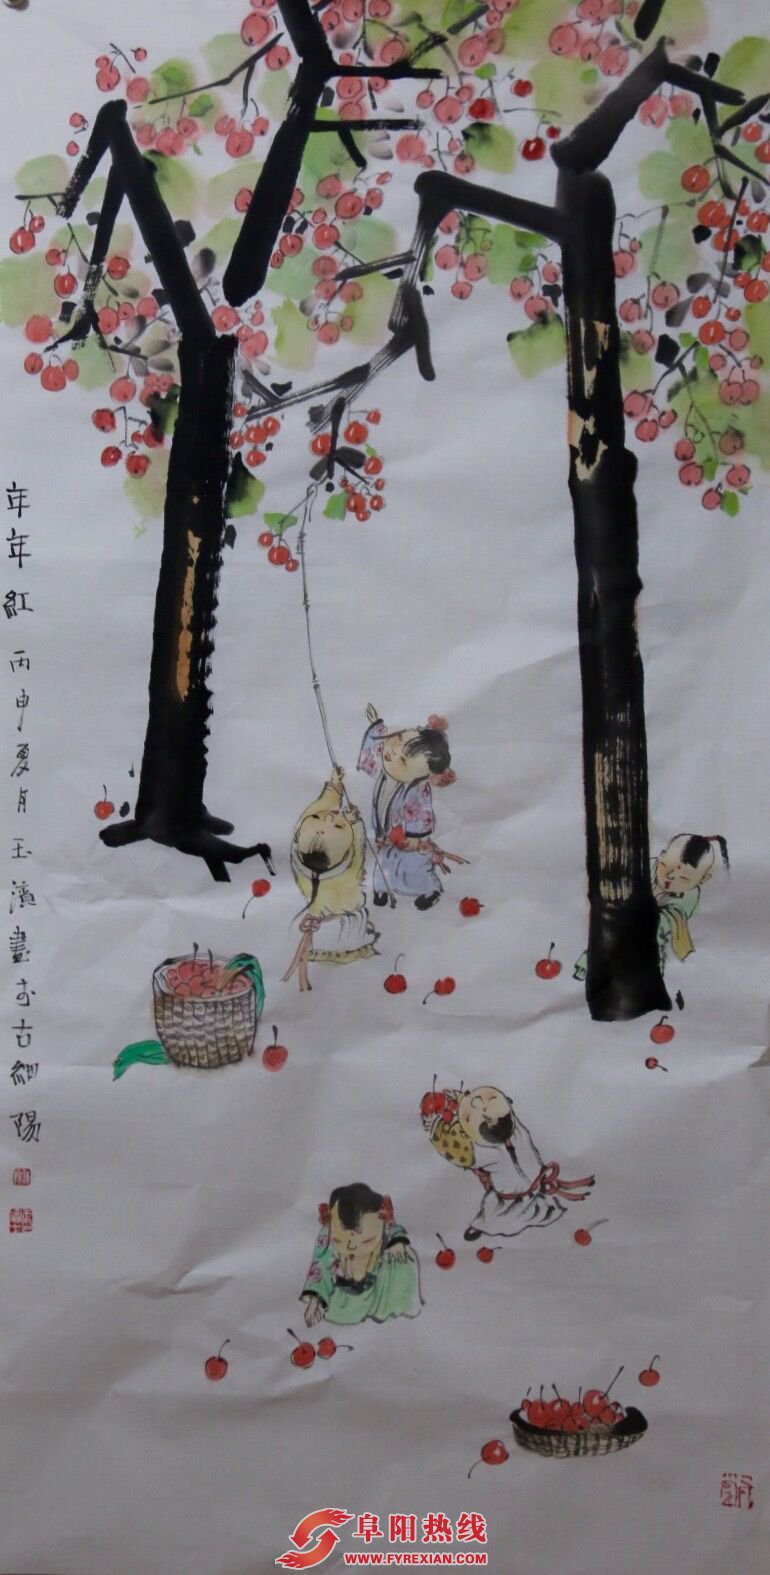 年年紅 丙申夏月玉濱畫於古細陽
阜阳热线
WWW.FYREXIAN.COM